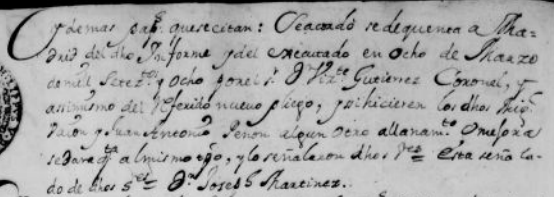 y demas pap.s que se citan: Se acordó se de quenta a Ma-
drid del dho Informe y del executado en ocho de Marzo
de mill Setez.tos y ocho por el s.r D Viz.te Gutierrez Coronel, y
assimismo del referido nuevo pliego, y si hicieren los dhos
y Juan Antonio Penon algun otro allanam.to o mejora
se dara q.ta al mismo tpo, y lo señalaron dhos s.res Está seña la-
do de dhos s.res D.n Joseph Martinez.